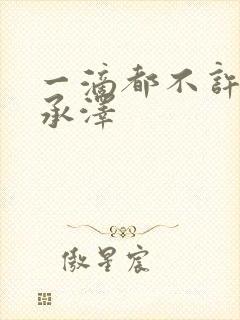 一滴都不許
承澤
傲星宸